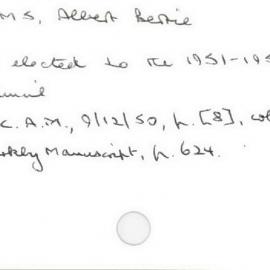 MS, Albert Bertie
elected to the 1951-195
uncil
C.A.M., 9/12/50, p. [8], col
rkly Manuscript, p. 624.